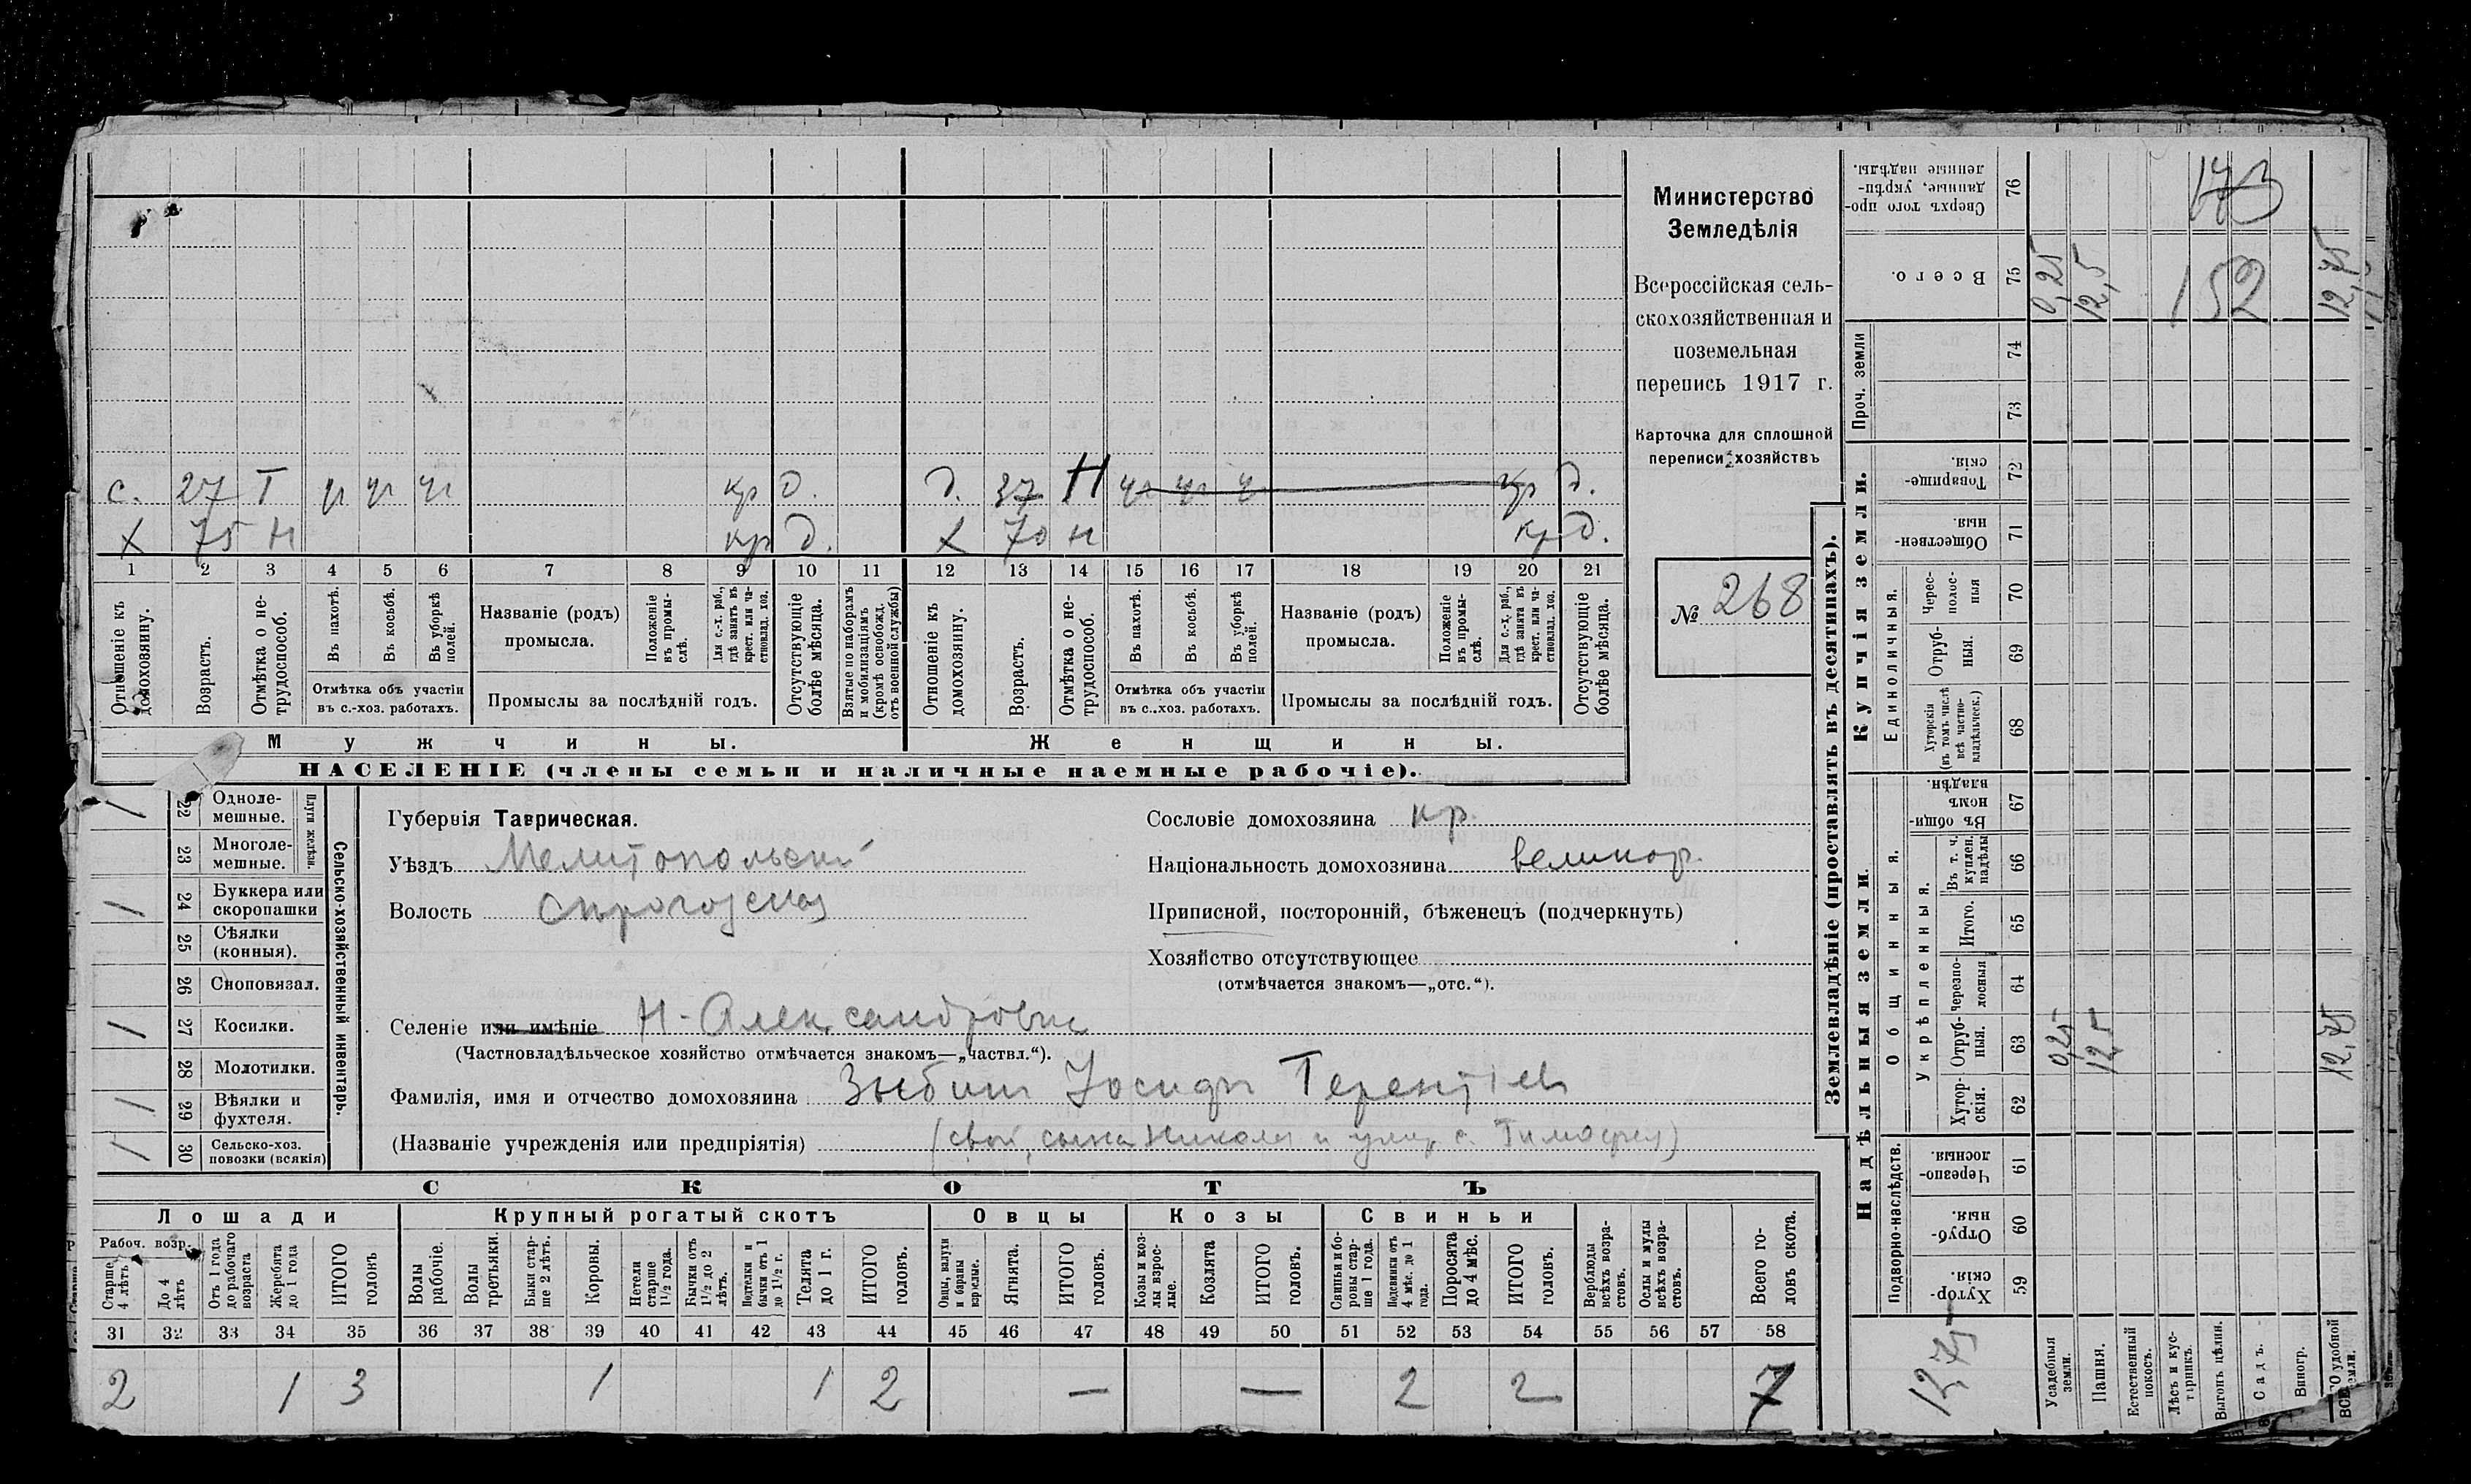 Министерство
Земледѣлія
Всероссійская сель-
скохозяйственная и
поземельная
перепись 1917 г.
Карточка для сплошной
переписи хозяйствъ
№ 268
с. 27 Т кр д. д. 37 Н кр д.
х 75 н кр д. х 70 н кр д.
1 2 3 4 5 6 7 8 9 10 11 12 13 14 15 16 17 18 19 20 21
Отношеніе къ домохозяину.
Возрастъ.
Отмѣтка о не-трудоспособ.
Въ пахотѣ.
Въ косьбѣ.
Въ уборкѣ полей.
Отмѣтка объ участіи въ с.-хоз. работахъ.
Названіе (родъ) промысла.
Положеніе въ промы-слѣ.
Для с.-х. раб., гдѣ занятъ въ крест. или ча-стновлад. хоз.
Промыслы за послѣдній годъ.
Отсутствующіе болѣе мѣсяца.
Взятые по наборамъ и мобилизаціямъ (кромѣ освобожд. отъ военной службы)
Отношеніе къ домохозяину.
Возрастъ.
Отмѣтка о не-трудоспособ.
Въ пахотѣ.
Въ косьбѣ.
Въ уборкѣ полей.
Отмѣтка объ участіи въ с.-хоз. работахъ.
Названіе (родъ) промысла.
Положеніе въ промы-слѣ.
Для с.-х. раб., гдѣ занята въ крест. или ча-стновлад. хоз.
Промыслы за послѣдній годъ.
Отсутствующіе болѣе мѣсяца.
Мужчины. Женщины.
НАСЕЛЕНІЕ (члены семьи и наличные наемные рабочіе).
Сельско-хозяйственный инвентарь.
Плуги желѣзн.
/ 22 Одноле-мешные.
23 Многоле-мешные.
/ 24 Буккера или скоропашки
25 Сѣялки (конныя).
26 Сноповязал.
/ 27 Косилки.
28 Молотилки.
/ 29 Вѣялки и фухтеля.
/ 30 Сельско-хоз. повозки (всякія)
Губернія Таврическая.
Уѣздъ Мелитопольскій
Волость
Сословіе домохозяина кр.
Національность домохозяина великор.
Приписной, посторонній, бѣженецъ (подчеркнуть)
Хозяйство отсутствующее
(отмѣчается знакомъ—„отс.“).
Селеніе или имѣніе Н-Александровка
(Частновладѣльческое хозяйство отмѣчается знакомъ—„частвл.“).
Фамилія, имя и отчество домохозяина Зыбин Иосифъ Терентіев
(Названіе учрежденія или предпріятія) сына Николая и Тимофея)
СКОТЪ
Лошади Крупный рогатый скотъ Овцы Козы Свиньи
Рабоч. возр.
Старше 4 лѣтъ
До 4 лѣтъ
Отъ 1 года до рабочаго возраста
Жеребята до 1 года
ИТОГО головъ
Волы рабочіе.
Волы третьяки.
Быки стар-ше 2 лѣтъ.
Коровы.
Нетели старше 1½ года.
Бычки отъ 1½ до 2 лѣтъ.
Подтелки и бычки отъ 1 до 1½ г.
Телята до 1 г.
ИТОГО головъ.
Овцы, валухи и бараны взрослые.
Ягнята.
ИТОГО головъ.
Козы и коз-лы взрос-лые.
Козлята
ИТОГО головъ.
Свиньи и бо-ровы стар-ше 1 года.
Подсвинки отъ 4 мѣс. до 1 года.
Поросята до 4 мѣс.
ИТОГО головъ.
Верблюды всѣхъ возра-стовъ.
Ослы и мулы всѣхъ возра-стовъ.
Всего го-ловъ скота.
31 32 33 34 35 36 37 38 39 40 41 42 43 44 45 46 47 48 49 50 51 52 53 54 55 56 57 58
2 1 3 1 1 2 — — 2 2 7
Землевладѣніе (проставлять въ десятинахъ).
Купчія земли.
Надѣльныя земли.
Сверхъ того про-данные, укрѣп-ленные надѣлы. 76 173
Всего. 75 0,25 12,5 152 12,75
Проч. земли
74
73
Товарище-скія. 72
Обществен-ныя. 71
Единоличныя.
Черес-полос-ныя 70
Отруб-ныя. 69
Хуторскія (въ томъ числѣ всѣ частно-владѣльческ.) 68
Общинныя.
Въ общи-номъ владѣн. 67
Укрѣпленныя.
Въ т. ч. куплен. надѣлы 66
Итого. 65
Черезпо-лосныя 64
Отруб-ныя. 63 0,25 12,5 12,75
Хутор-скія. 62
Подворно-наслѣдств.
Черезпо-лосныя. 61
Отруб-ныя. 60
Хутор-скія. 59
12,75
Усадебныя земли.
Пашня.
Естественный покосъ.
Лѣсъ и кус-тарникъ.
Выгонъ цѣлин.
Садъ.
Виногр.
удобной земли.